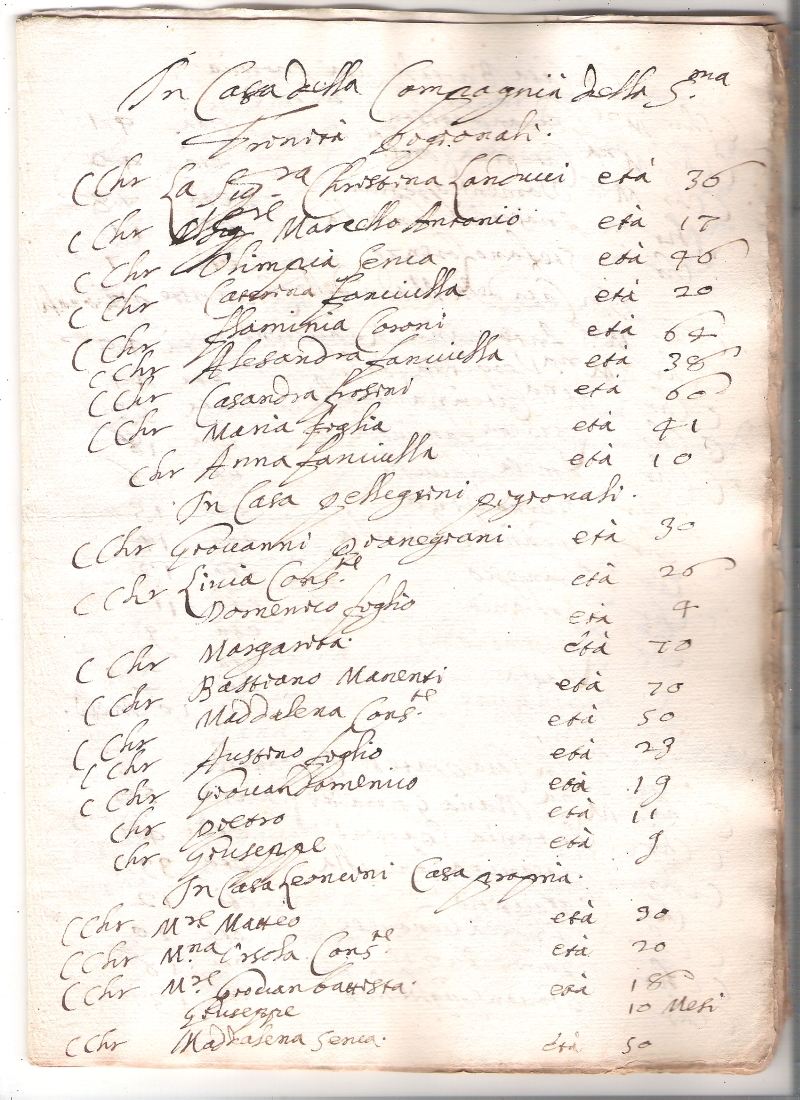 In Casa della Compagnia della S.ma
Trinità Pigionali.
C Chr La Sig.ra Christina Landucci età 36
C Chr Marcello Antonio età 17
C Chr Olimpia Serua età 46
C Chr Caterina fanciulla età 20
C Chr Flaminia Coroni età 64
C Chr Alesandra fanciulla età 38
C Chr Casandra Frosini età 60
C Chr Maria figlia età 41
Chr Anna fanciulla età 10
In Casa Pellegrini Pigionali.
C Chr Giouanni Pianegiani età 30
C Chr Liuia Cons.te età 26
Domenico figlio età 4
C Chr Margarita. età 70
C Chr Bastiano Manenti età 70
C Chr Maddalena Cons.te età 50
C Chr Austino figlio età 23
C Chr Giouandomenico età 19
Chr Pietro età 11
Chr Giuseppe età 9
In Casa Leoncini Casa propria.
C Chr M.re Matteo età 30
C Chr M.na Orsola Cons.te età 20
C Chr M.re Giouanbattista. età 18
Giuseppe 10 Mesi
C Chr Maddalena Serua. età 50